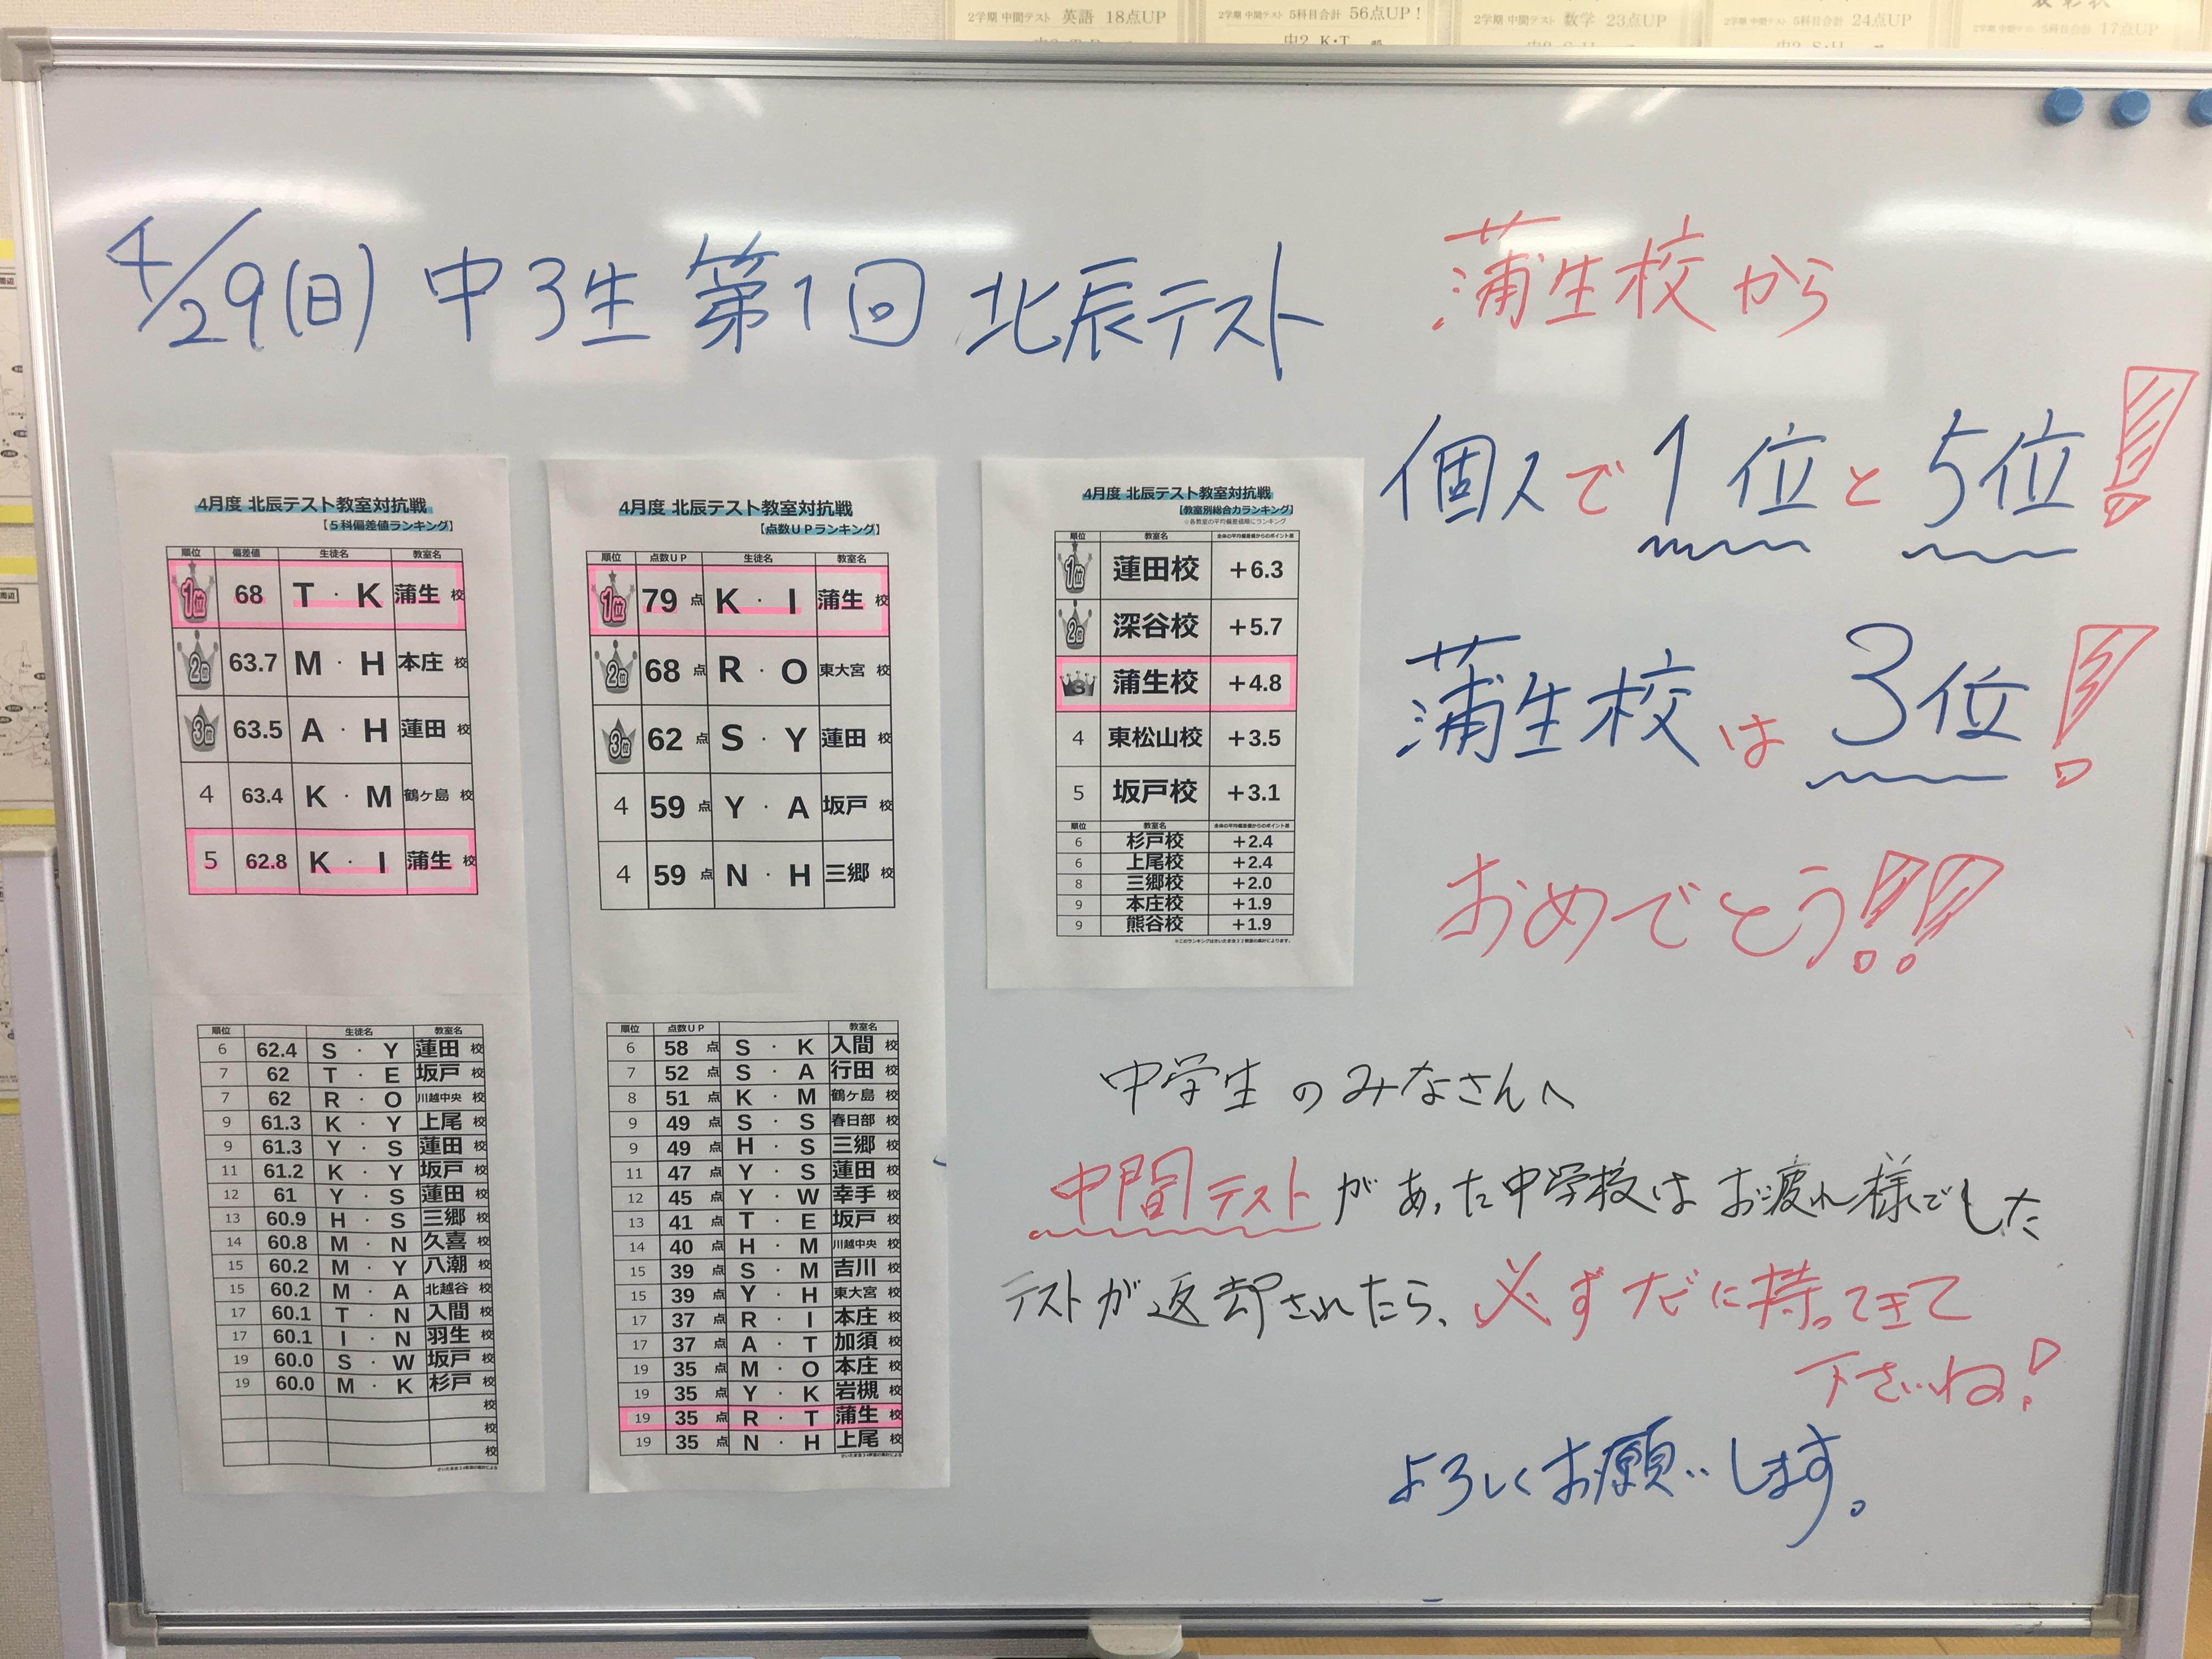 2学期 中間テスト 英語 18点UP
2学期 中間テスト 5科目合計 56点UP！
中2 K・T
2学期 中間テスト 数学 23点UP
2学期 中間テスト 5科目合計 24点UP
2学期 中間テスト 5科目合計 17点UP
4/29(日) 中3生 第1回 北辰テスト
蒲生校から
個人で1位と5位!
蒲生校は3位!
おめでとう!!
4月度 北辰テスト教室対抗戦
【5科偏差値ランキング】
順位 偏差値 生徒名 教室名
1位 68 T・K 蒲生 校
2位 63.7 M・H 本庄 校
3位 63.5 A・H 蓮田 校
4 63.4 K・M 鶴ヶ島 校
5 62.8 K・I 蒲生 校
順位 生徒名 教室名
6 62.4 S・Y 蓮田 校
7 62 T・E 坂戸 校
7 62 R・O 川越中央 校
9 61.3 K・Y 上尾 校
9 61.3 Y・S 蓮田 校
11 61.2 K・Y 坂戸 校
12 61 Y・S 蓮田 校
13 60.9 H・S 三郷 校
14 60.8 M・N 久喜 校
15 60.2 M・Y 八潮 校
15 60.2 M・A 北越谷 校
17 60.1 T・N 入間 校
17 60.1 I・N 羽生 校
19 60.0 S・W 坂戸 校
19 60.0 M・K 杉戸 校
校
校
校
4月度 北辰テスト教室対抗戦
【点数UPランキング】
順位 点数UP 生徒名 教室名
1位 79 点 K・I 蒲生 校
2位 68 点 R・O 東大宮 校
3位 62 点 S・Y 蓮田 校
4 59 点 Y・A 坂戸 校
4 59 点 N・H 三郷 校
順位 点数UP 教室名
6 58 点 S・K 入間 校
7 52 点 S・A 行田 校
8 51 点 K・M 鶴ヶ島 校
9 49 点 S・S 春日部 校
9 49 点 H・S 三郷 校
11 47 点 Y・S 蓮田 校
12 45 点 Y・W 幸手 校
13 41 点 T・E 坂戸 校
14 40 点 H・M 川越中央 校
15 39 点 S・M 吉川 校
15 39 点 Y・H 東大宮 校
17 37 点 R・I 本庄 校
17 37 点 A・T 加須 校
19 35 点 M・O 本庄 校
19 35 点 Y・K 岩槻 校
19 35 点 R・T 蒲生 校
19 35 点 N・H 上尾 校
4月度 北辰テスト教室対抗戦
【教室別総合力ランキング】
☆各教室の平均偏差値順にランキング
順位 教室名 全体の平均偏差値からのポイント差
1位 蓮田校 +6.3
2位 深谷校 +5.7
3 蒲生校 +4.8
4 東松山校 +3.5
5 坂戸校 +3.1
順位 教室名 全体の平均偏差値からのポイント差
6 杉戸校 +2.4
6 上尾校 +2.4
8 三郷校 +2.0
9 本庄校 +1.9
9 熊谷校 +1.9
中学生のみなさんへ
中間テストがあった中学校はお疲れ様でした
テストが返却されたら、必ずナビに持ってきて
下さいね!
よろしくお願いします。